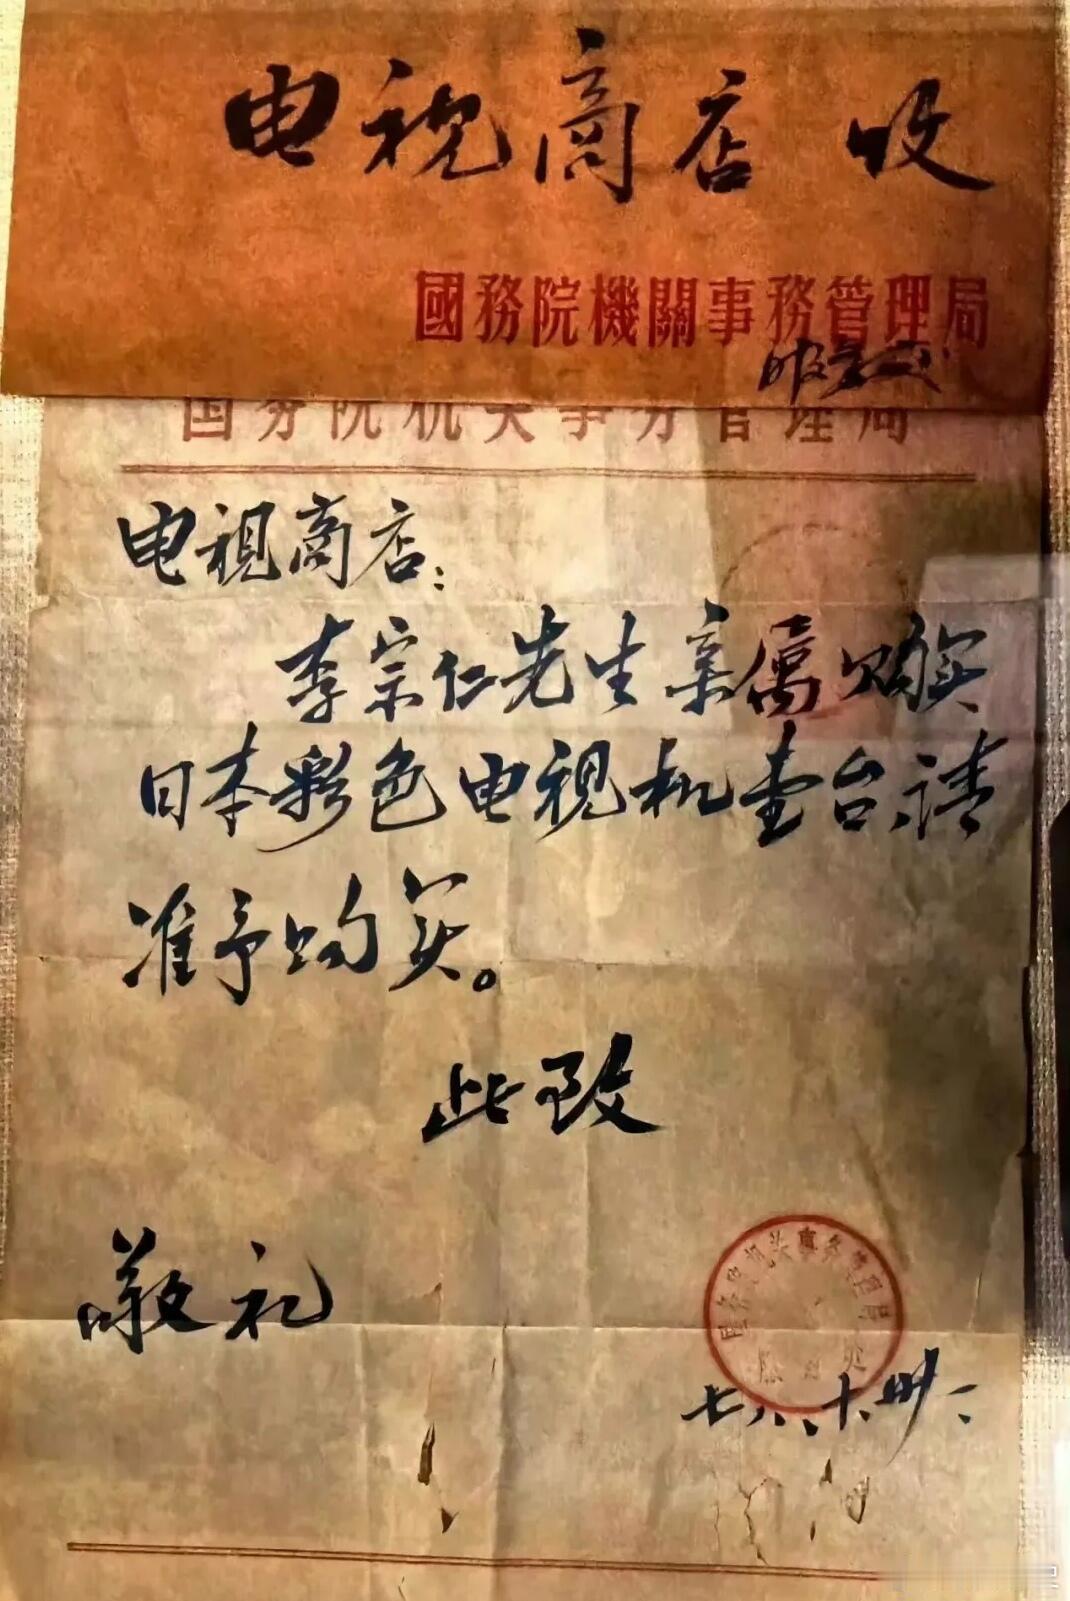 电视商店 收
國務院機關事務管理局
国务院机关事务管理局
电视商店：
李宗仁先生亲属购买
日本彩色电视机壹台，请
准予购买。
此致
敬礼
国务院机关事务管理局
七八、十、